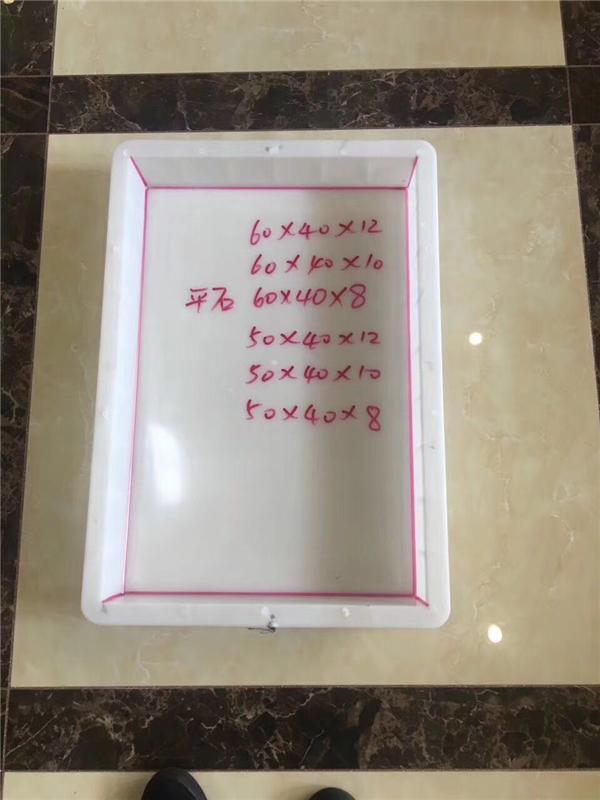 60×40×12
60×40×10
平石 60×40×8
50×40×12
50×40×10
50×40×8